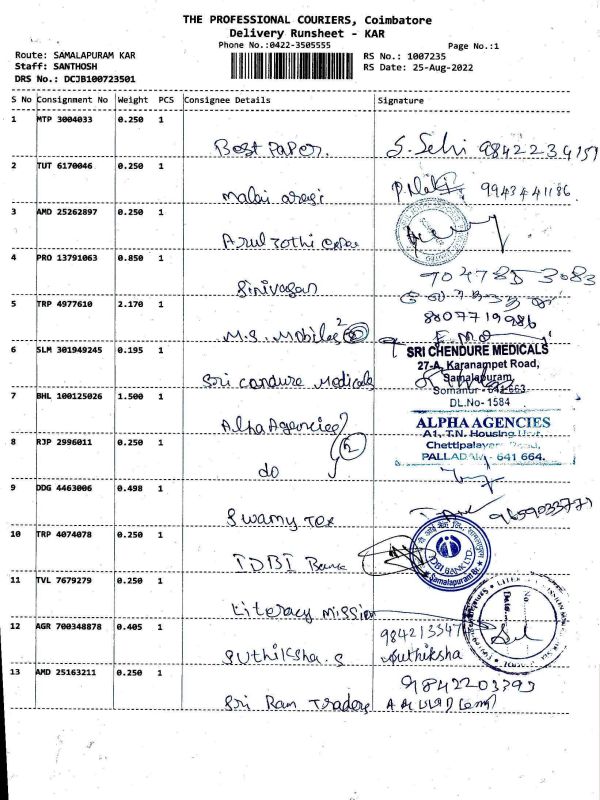 THE PROFESSIONAL COURIERS, Coimbatore
Delivery Runsheet - KAR
Phone No.:0422-3505555
Page No.:1
Route: SAMALAPURAM KAR
RS No.: 1007235
Staff: SANTHOSH
RS Date: 25-Aug-2022
DRS No.: DCJB100723501
S No Consignment No Weight PCS Consignee Details Signature
1 MTP 3004033 0.250 1
Best Paper. S. Selvi 9842234151
2 TUT 6170046 0.250 1
9943441186
3 AMD 25262897 0.250 1
Arul Jothi
4 PRO 13791063 0.850 1
Sinivasan 7047853083
5 TRP 4977610 2.170 1
8807719986
M.S. Mobiles 2
6 SLM 301949245 0.195 1
SRI CHENDURE MEDICALS
27-A, Karanampet Road,
Samalapuram,
Somanur - 641 663
DL.No- 1584
Sri Candure Medicals
7 BHL 100125026 1.500 1
ALPHA AGENCIES
A1, T.N. Housing Unit,
Chettipalayam Road,
PALLADAM - 641 664.
Alpha Agencies 2
8 RJP 2996011 0.250 1
do
9 DDG 4463006 0.498 1
Swamy Tex 9659033771
10 TRP 4074078 0.250 1
IDBI Bank
IDBI BANK LTD.
Samalapuram Br
11 TVL 7679279 0.250 1
Literacy Mission
12 AGR 700348878 0.405 1
Suthiksha. S Suthiksha
13 AMD 25163211 0.250 1
9842203393
Sri Ram Traders